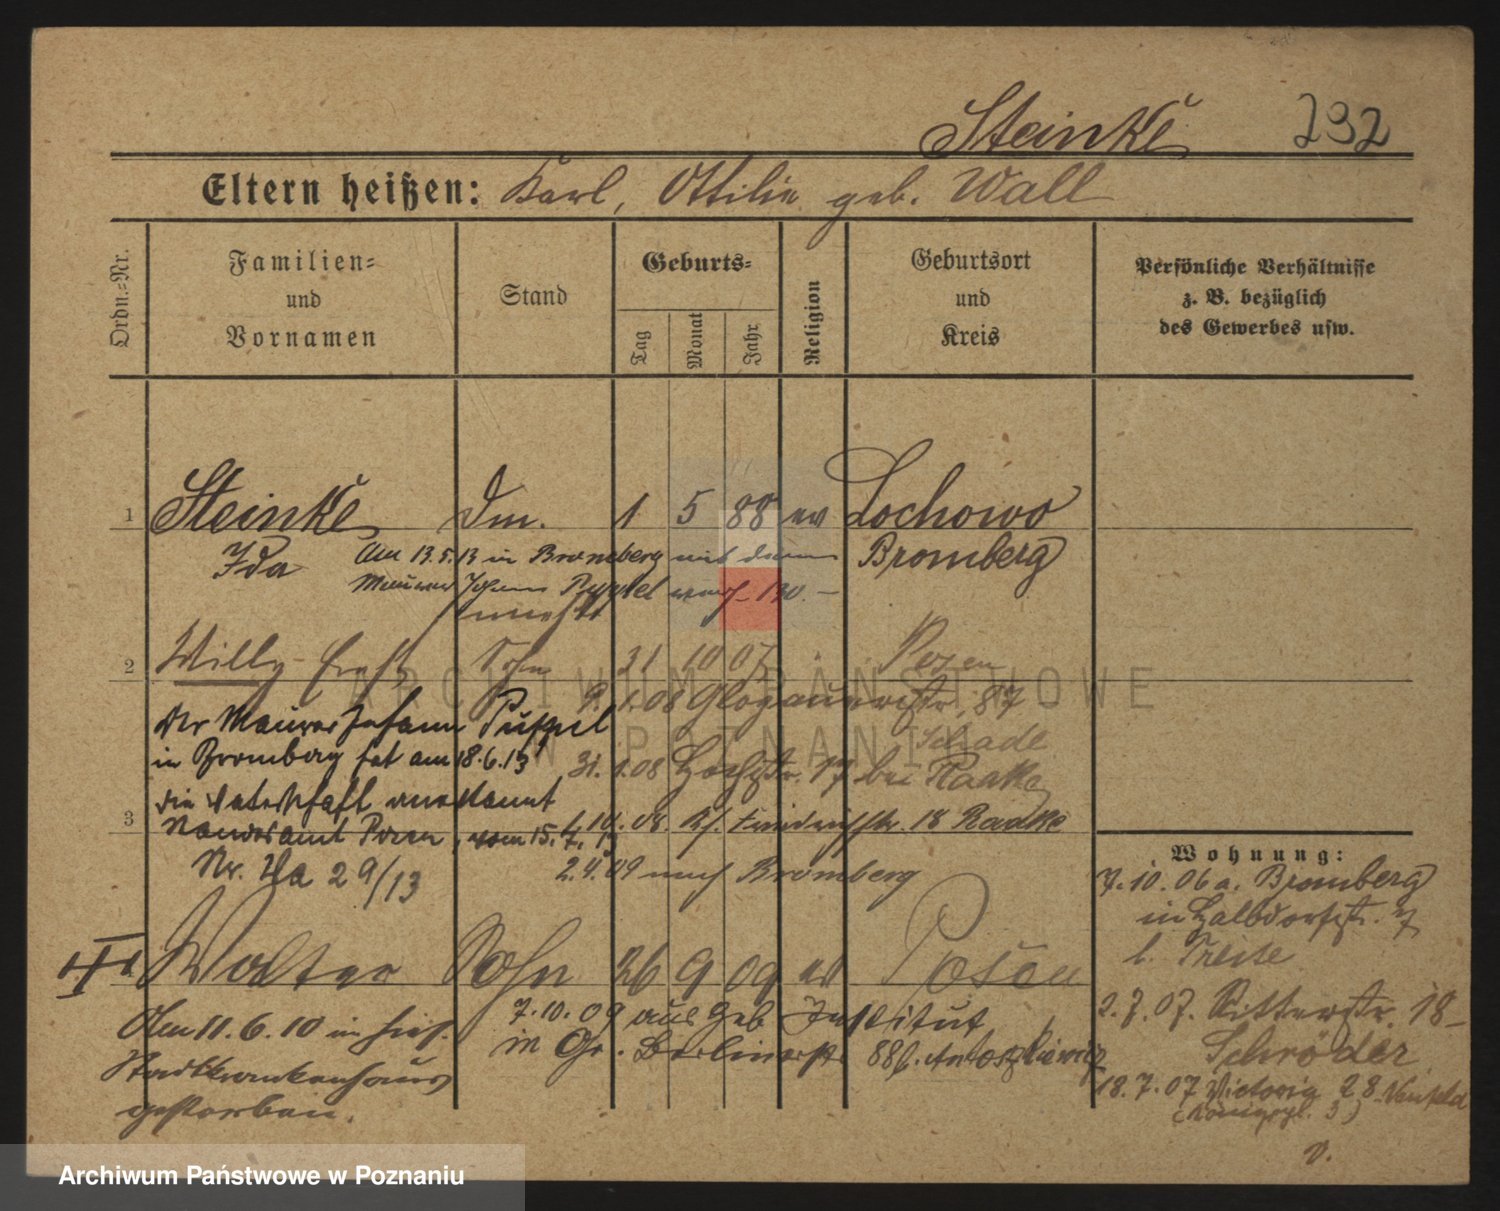 Steinke 232
Eltern heißen: Karl, Ottilie geb. Wall
Ordn.=Nr.
Familien=
und
Vornamen
Stand
Geburts=
Tag
Monat
Jahr
Religion
Geburtsort
und
Kreis
Persönliche Verhältnisse
z. B. bezüglich
des Gewerbes usw.
1 Steinke Dm. 1 5 88 ev Lochowo
Ida Am 13.5.13 in Bromberg mit dem Bromberg
Maurer Johann
2 Willy Ernst Sohn 31 10 07 Posen
9.1.08 Glogauerstr. 87
Der Maurer Johann Puppel
Schade
in Bromberg hat am 18.6.13
31.1.08 17 bei Radke
die Vaterschaft anerkannt
3 Standesamt Posen, vom 15.7.13
1.10.08. 18 Radke
Nr. IIa 29/13
2.4.09 nach Bromberg
Walter Sohn 26 9 09 ev Posen
7.10.09 aus Geb Institut
Am 11.6.10 in hies.
in Gr. Berlinerstr 88
Stadtkrankenhaus
gestorben.
Wohnung:
7.10.06 a. Bromberg
in Halbdorfstr. 7
2.7.07. Ritterstr. 18
Schröder
18.7.07 Victoria 28
(Königspl. 3)
v.
ARCHIWUM PAŃSTWOWE
W POZNANIU
Archiwum Państwowe w Poznaniu